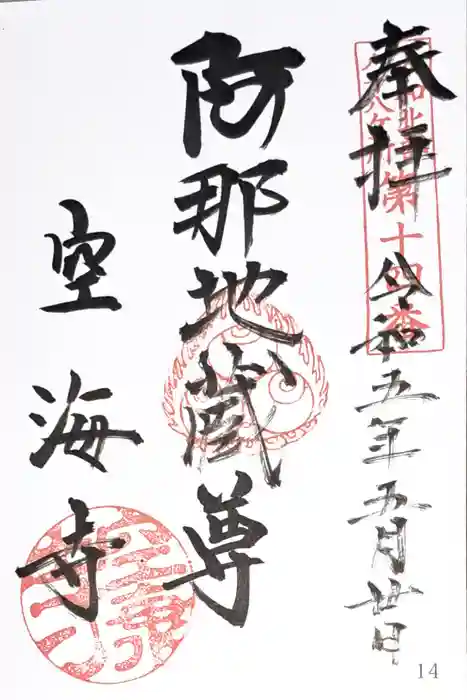 奉拝
令和五年五月廿日
第十四番
阿那地蔵尊
空海寺
14